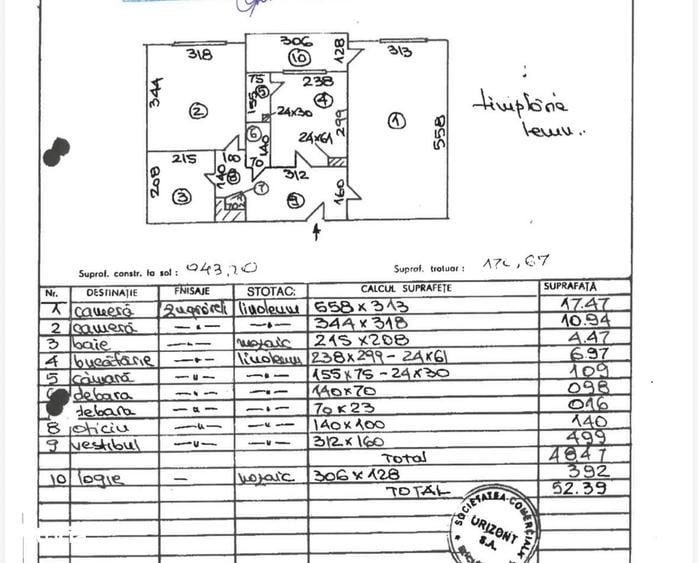 318
306
10
128
313
344
2
75
155
5
238
4
24x30
299
1
558
tîmplărie
lemn..
6
140
24x61
215
208
3
140
8
70
312
7
9
160
Supraf. constr. la sol: 043,20
Supraf. trotuar: 170,67
Nr. DESTINAȚIE FINISAJE STOTAC: CALCUL SUPRAFEȚE SUPRAFAȚĂ
1 cameră zugrăveli linoleum 558 x 313 17.47
2 cameră —"— —"— 344 x 318 10.94
3 baie —"— mozaic 215 x 208 4.47
4 bucătărie —"— linoleum 238 x 299 - 24 x 61 6.97
5 cămară —"— —"— 155 x 75 - 24 x 30 109
debara —"— —"— 140 x 70 098
debara —"— —"— 70 x 23 016
8 oficiu —"— —"— 140 x 100 140
9 vestibul —"— —"— 312 x 160 499
Total 4847
10 logie — mozaic 306 x 128 392
TOTAL 52.39
SOCIETATEA COMERCIALĂ
URIZONT
S.A.